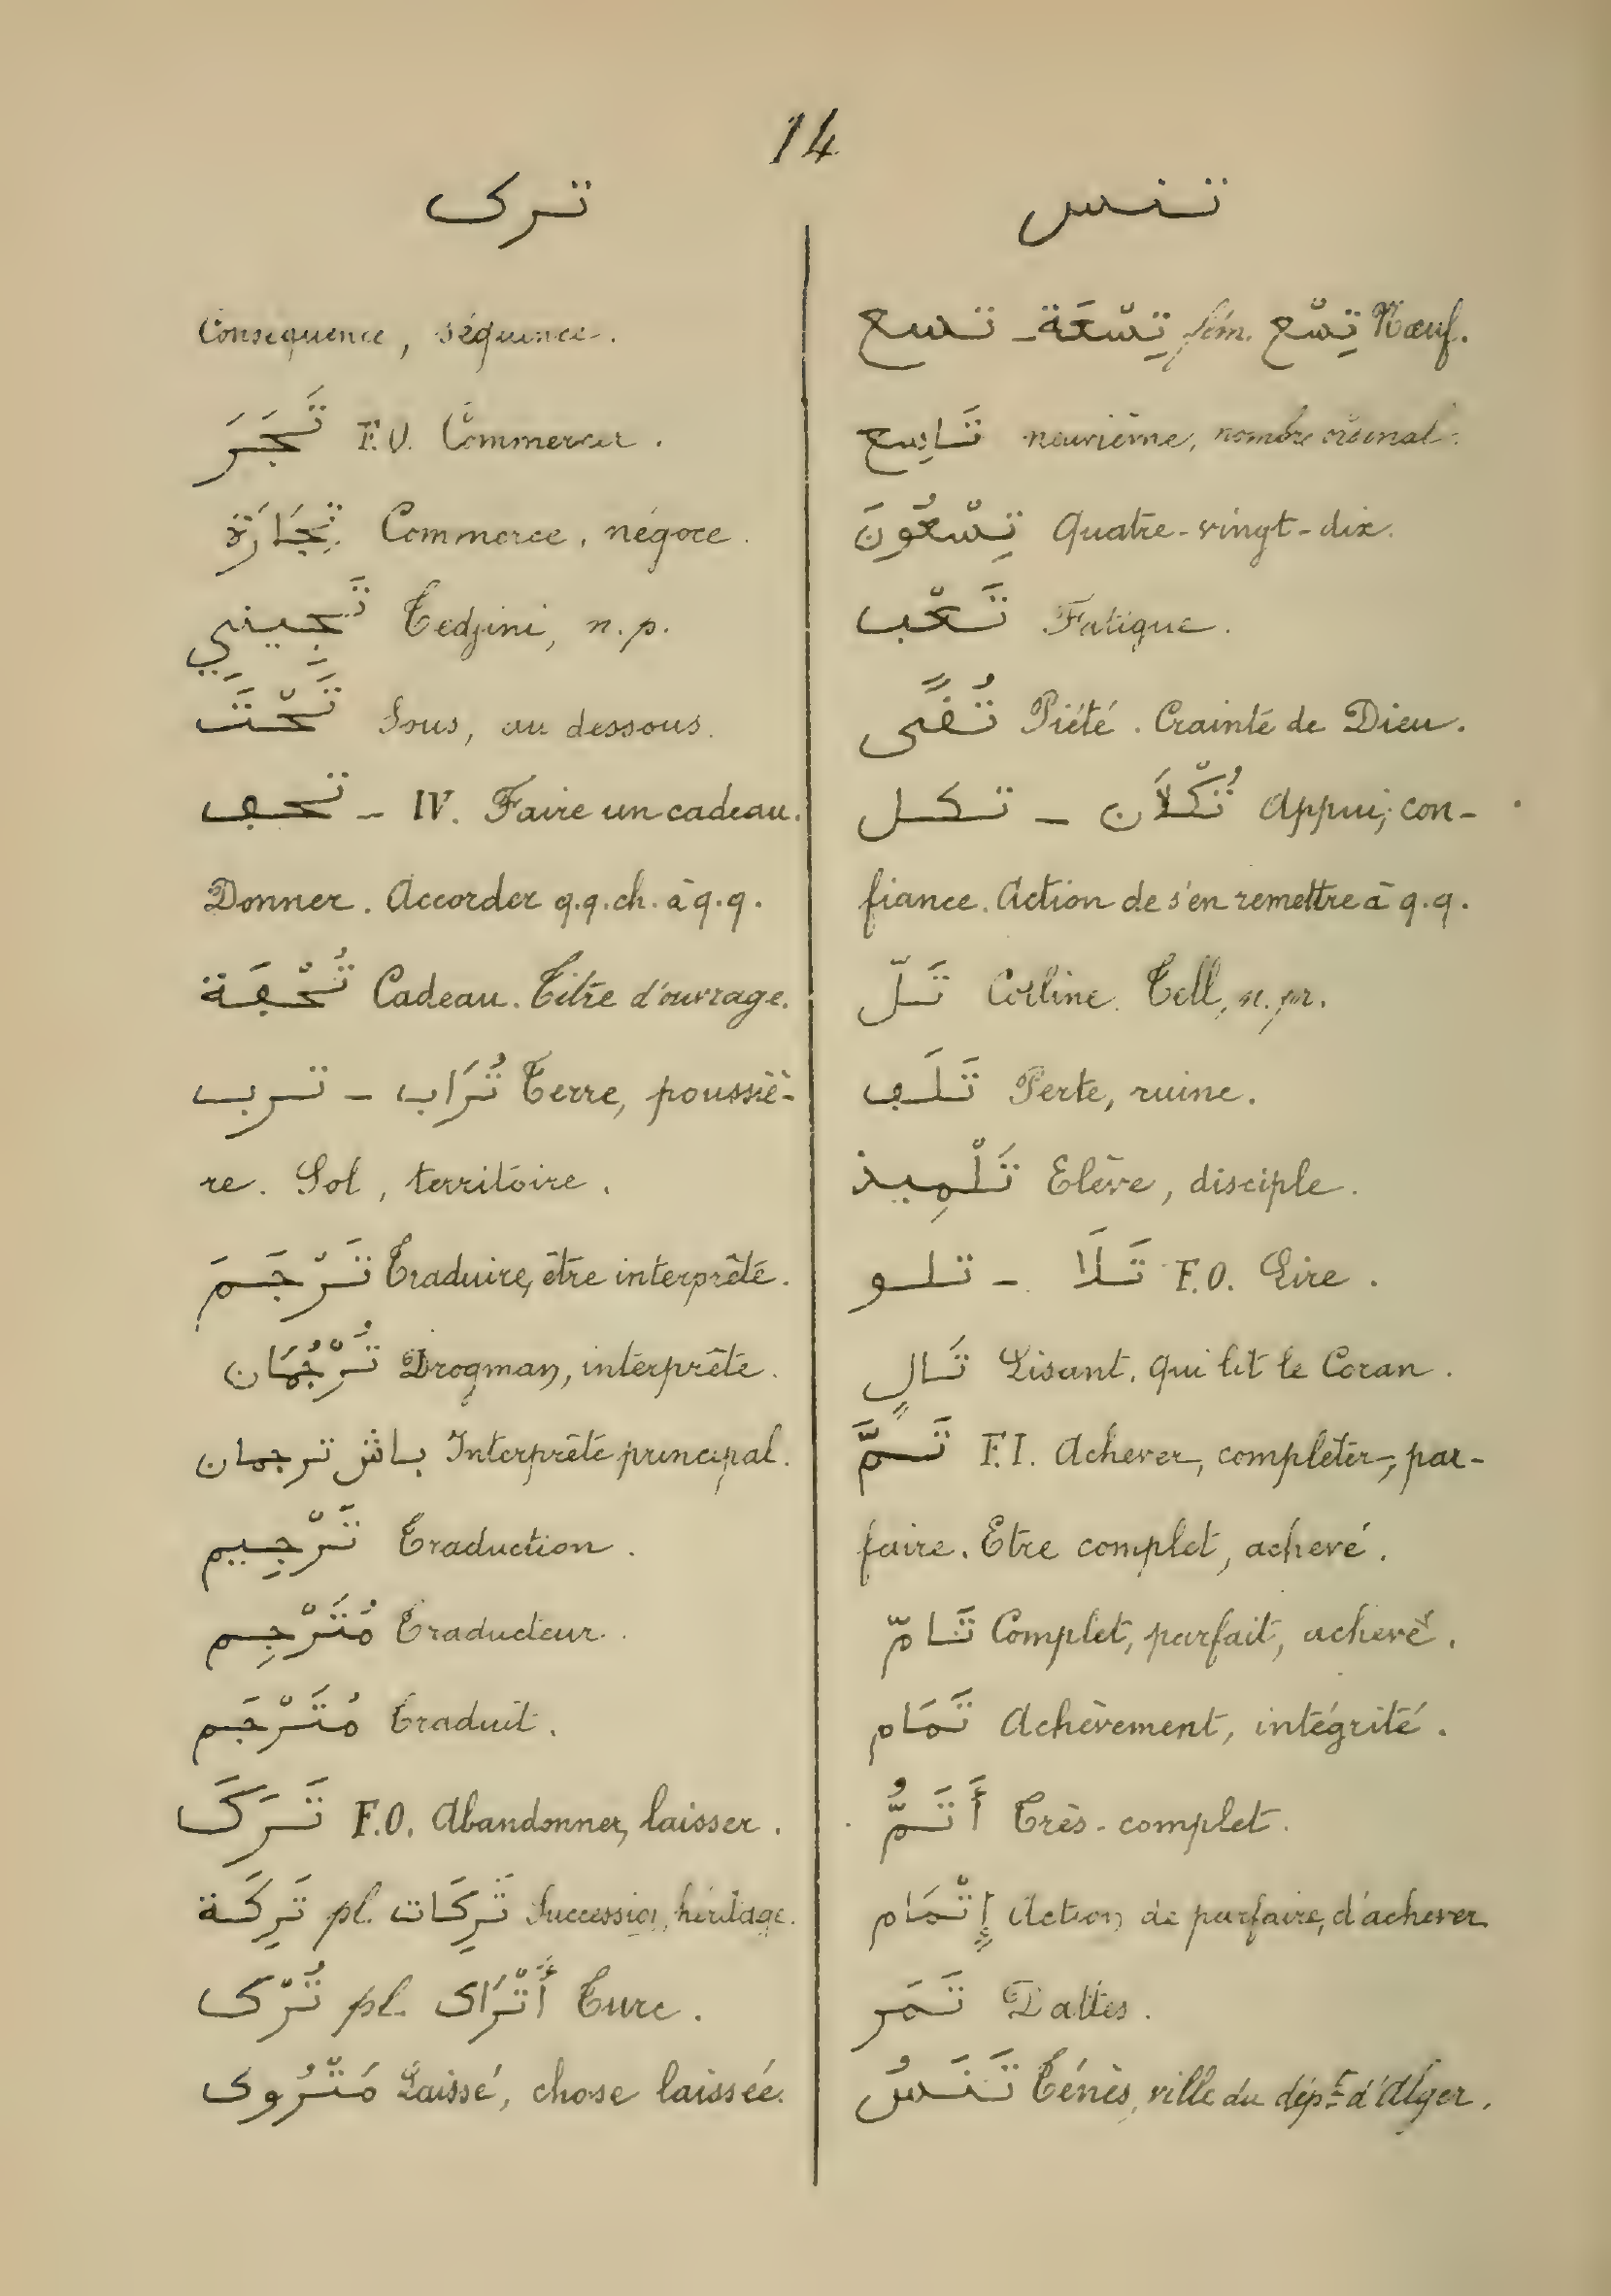 14
ترك
Conséquence, séquence.
تَجَرَ F.O. Commercer.
تِجَارَة Commerce, négoce.
تَجِينِي Tedjini, n.p.
تَحْتَ Sous, au dessous.
تحف — IV. Faire un cadeau.
Donner. Accorder q.q.ch. à q.q.
تُحْفَة Cadeau. Titre d'ouvrage.
ترب — تُرَاب Terre, poussiè-
re. Sol, territoire.
تَرْجَمَ Traduire, être interprète.
تُرْجُمَان Drogman, interprète.
باش ترجمان Interprète principal.
تَرْجِيم Traduction.
مُتَرْجِم Traducteur.
مُتَرْجَم Traduit.
تَرَكَ F.O. Abandonner, laisser.
تَرِكَة pl. تَرِكَات Succession, héritage.
تُرْك pl. أَتْرَاك Turc.
مَتْرُوك Laissé, chose laissée.
تنس
تسع — تِسْعَة fém. تِسْع Nœuf.
تَاسِع neuvième, nombre ordinal.
تِسْعُونَ Quatre-vingt-dix.
تَعْب Fatigue.
تُقًى Piété. Crainte de Dieu.
تكل — تُكْلَان Appui, con-
fiance. Action de s'en remettre à q.q.
تَلّ Colline. Tell, n. pr.
تَلَف Perte, ruine.
تَلْمِيذ Elève, disciple.
تلو — تَلَا F.O. Lire.
تَالٍ Lisant, qui lit le Coran.
تَمَّ F.I. Achever, compléter, par-
faire. Etre complet, achevé.
تَامّ Complet, parfait, achevé.
تَمَام Achèvement, intégrité.
أَتَمُّ Très-complet.
إِتْمَام Action de parfaire, d'achever
تَمَر Dattes.
تَنَسُ Ténès, ville du dépt d'Alger.